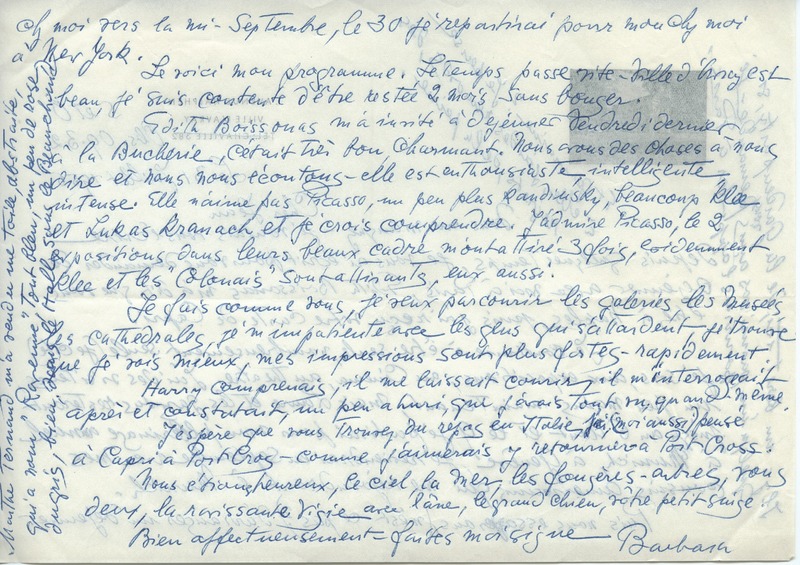 chy moi vers la mi-Septembre, le 30 je repartirai pour mon chy moi
à New York.
Le voici mon programme. Le temps passe vite - est
beau je suis contente d'être restée 2 mois sans bouger.
Edith Boissonas m'a invité à déjeuner Vendredi dernier
à la Bucherie, c'était très bon Charmant. Nous avons des choses à nous
dire et nous nous écoutons - elle est enthousiaste intelligente
intense. Elle n'aime pas Picasso, un peu plus Kandinsky, beaucoup Klee
et Lukas Kranach et je crois comprendre. J'admire Picasso, le 2
expositions dans leurs beaux cadre m'ont attiré 3 fois, évidemment
Klee et les "Colonais" sont attirants, eux aussi.
Je fais comme vous, je veux parcourir les galeries les musées
les cathédrales, je m'impatiente avec les gens qui s'attardent je trouve
que je vois mieux, mes impressions sont plus fortes - rapidement.
Harry comprenais, il me laissait courir, il m'interrogeait
après et constatait, un peu ahuri, que j'avais tout vu quand même.
J'espère que vous trouvez du repos en Italie j'ai (moi aussi) pensé
à Capri à Port Cros - comme j'aimerais y retourner à Port Cross.
Nous étions heureux, le ciel, la mer, les fougères - arbres, vous
deux, la ravissante Vigie avec l'âne, le grand chien, votre petit singe
Bien affectueusement - faites moi signe Barbara
Marthe m'a vendu une toile, abstraite,
qui a nom "Ravenne" tout bleu, un peu de rose
bien, dans le Hall